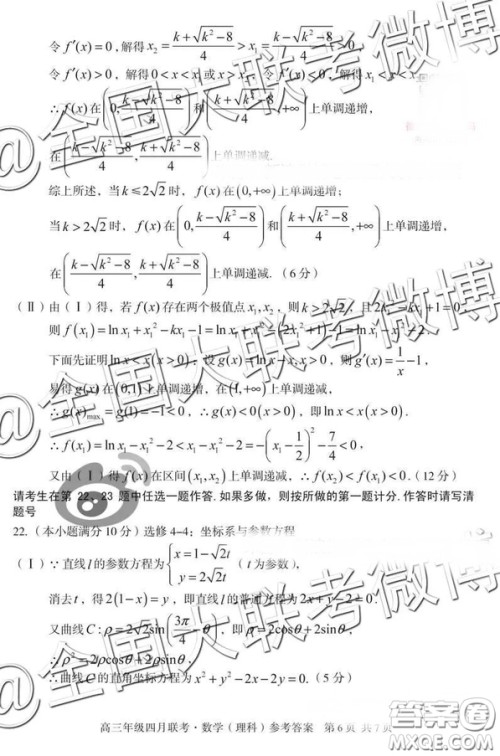 令 f′(x) = 0,解得 x₂ = (k+√(k²−8))/4 > x₁ = (k−√(k²−8))/4 > 0.
令 f′(x) > 0,解得 0 < x < x₁ 或 x > x₂,令 f′(x) < 0,解得 x₁ < x < x₂
∴ f(x) 在 (0, (k−√(k²−8))/4) 和 ((k+√(k²−8))/4, +∞) 上单调递增,
在 ((k−√(k²−8))/4, (k+√(k²−8))/4) 上单调递减.
综上所述,当 k ⩽ 2√2 时,f(x) 在 (0, +∞) 上单调递增;
当 k > 2√2 时,f(x) 在 (0, (k−√(k²−8))/4) 和 ((k+√(k²−8))/4, +∞) 上单调递增,
在 ((k−√(k²−8))/4, (k+√(k²−8))/4) 上单调递减.(6分)
(Ⅱ)由(Ⅰ)得,若 f(x) 存在两个极值点 x₁, x₂,则 k > 2√2,且 2x₁² − kx₁ + 1 = 0
则 f(x₁) = ln x₁ + x₁² − kx₁ − 1 = ln x₁ + x₁² − (2x₁² + 1) − 1
下面先证明 ln x < x (x > 0),设 g(x) = ln x − x, x > 0,则 g′(x) = 1/x − 1,
易得 g(x) 在 (0,1) 上单调递增,在 (1, +∞)
∴ g(x)max = g(1) = −1 < 0,∴ g(x) < 0 (x > 0),即 ln x < x (x > 0).
∴ f(x₁) = ln x₁ − x₁² − 2 < x₁ − x₁² − 2 = −(x₁ − 1/2)² − 7/4 < 0,
又由(Ⅰ)得 f(x) 在区间 (x₁, x₂) 上单调递减,∴ f(x₂) < f(x₁) < 0.(12分)
请考生在第 22、23 题中任选一题作答.如果多做,则按所做的第一题计分.作答时请写清
题号
22.(本小题满分10分)选修 4–4:坐标系与参数方程
(Ⅰ)∵ 直线 l 的参数方程为 {x = 1 − √2t, y = 2√2t (t 为参数),
消去 t,得 2(1 − x) = y,即直线 l 的普通方程为 2x + y − 2 = 0.
又曲线 C:ρ = 2√2 sin(3π/4 − θ),即 ρ = 2cosθ + 2sinθ,
∴ ρ² = 2ρcosθ + 2ρsinθ,
∴ 曲线 C 的直角坐标方程为 x² + y² − 2x − 2y = 0.(5分)
高三年级四月联考·数学(理科)参考答案 第6页 共7页
@全国大联考微博
@全国大联考微博
答案圈
MXQE.COM